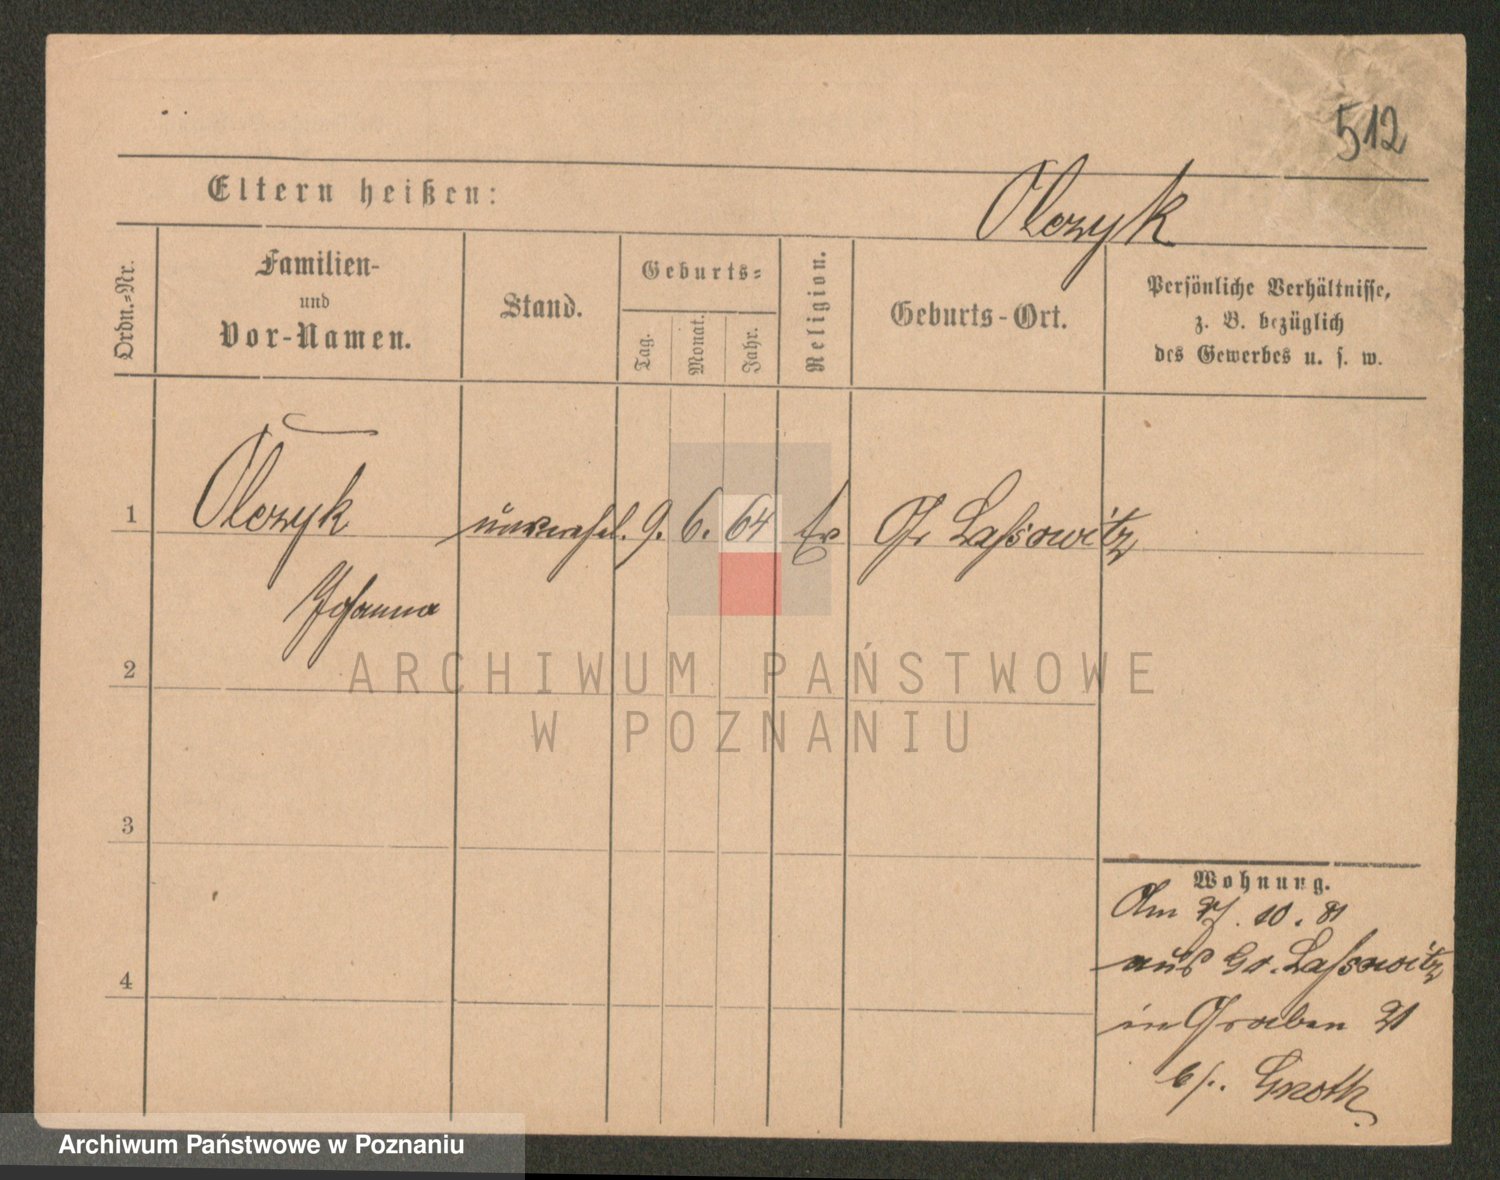 512
Eltern heißen:
Olczyk
Ordn.-Nr.
Familien-
und
Vor-Namen.
Stand.
Geburts-
Tag.
Monat.
Jahr.
Religion.
Geburts-Ort.
Persönliche Verhältnisse,
z. B. bezüglich
des Gewerbes u. s. w.
1 Olczyk unverehel. 9. 6. 64 Ev Gr Laßowitz
Johanna
2
3
4
Wohnung.
Am 10. 81
aus Gr. Laßowitz
in Graben 21
b/. Groth
ARCHIWUM PAŃSTWOWE
W POZNANIU
Archiwum Państwowe w Poznaniu